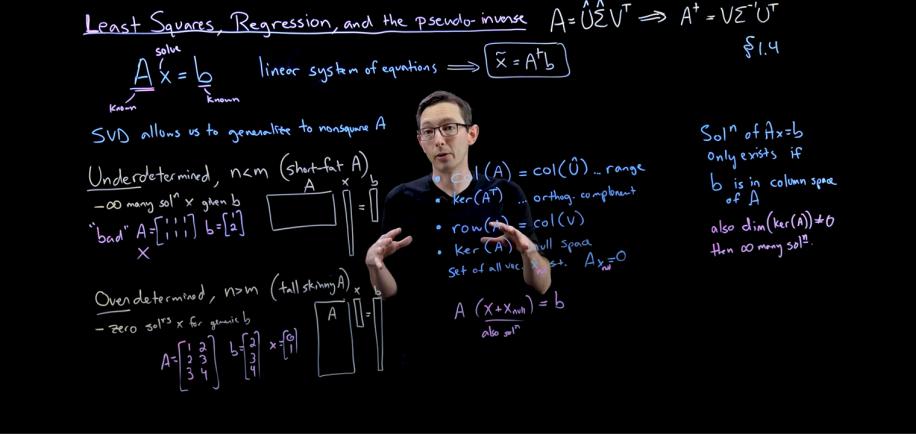 Least Squares, Regression, and the pseudo-inverse
A = ÛΣ̂Vᵀ ⟹ A⁺ = VΣ̂⁻¹Ûᵀ
§1.4
solve
A x = b
known
known
linear system of equations ⟹ x̃ = A⁺b
SVD allows us to generalize to nonsquare A
Underdetermined, n<m (short-fat A)
- ∞ many solⁿ x given b
"bad" A=[1 1 1; 1 1 1] b=[1; 2]
X
A x = b
Overdetermined, n>m (tall skinny A)
- zero solⁿˢ x for generic b
A=[1 2; 2 3; 3 4] b=[2; 3; 4] x=[0; 1]
A x = b
• col(A) = col(Û) ... range
• ker(Aᵀ) ... orthog. complement
• row(A) = col(V)
• ker(A) null space
set of all vec s.t. A x_null = 0
A (x + x_null) = b
also solⁿ
Solⁿ of Ax=b
only exists if
b is in column space
of A
also dim(ker(A)) ≠ 0
then ∞ many solⁿ.